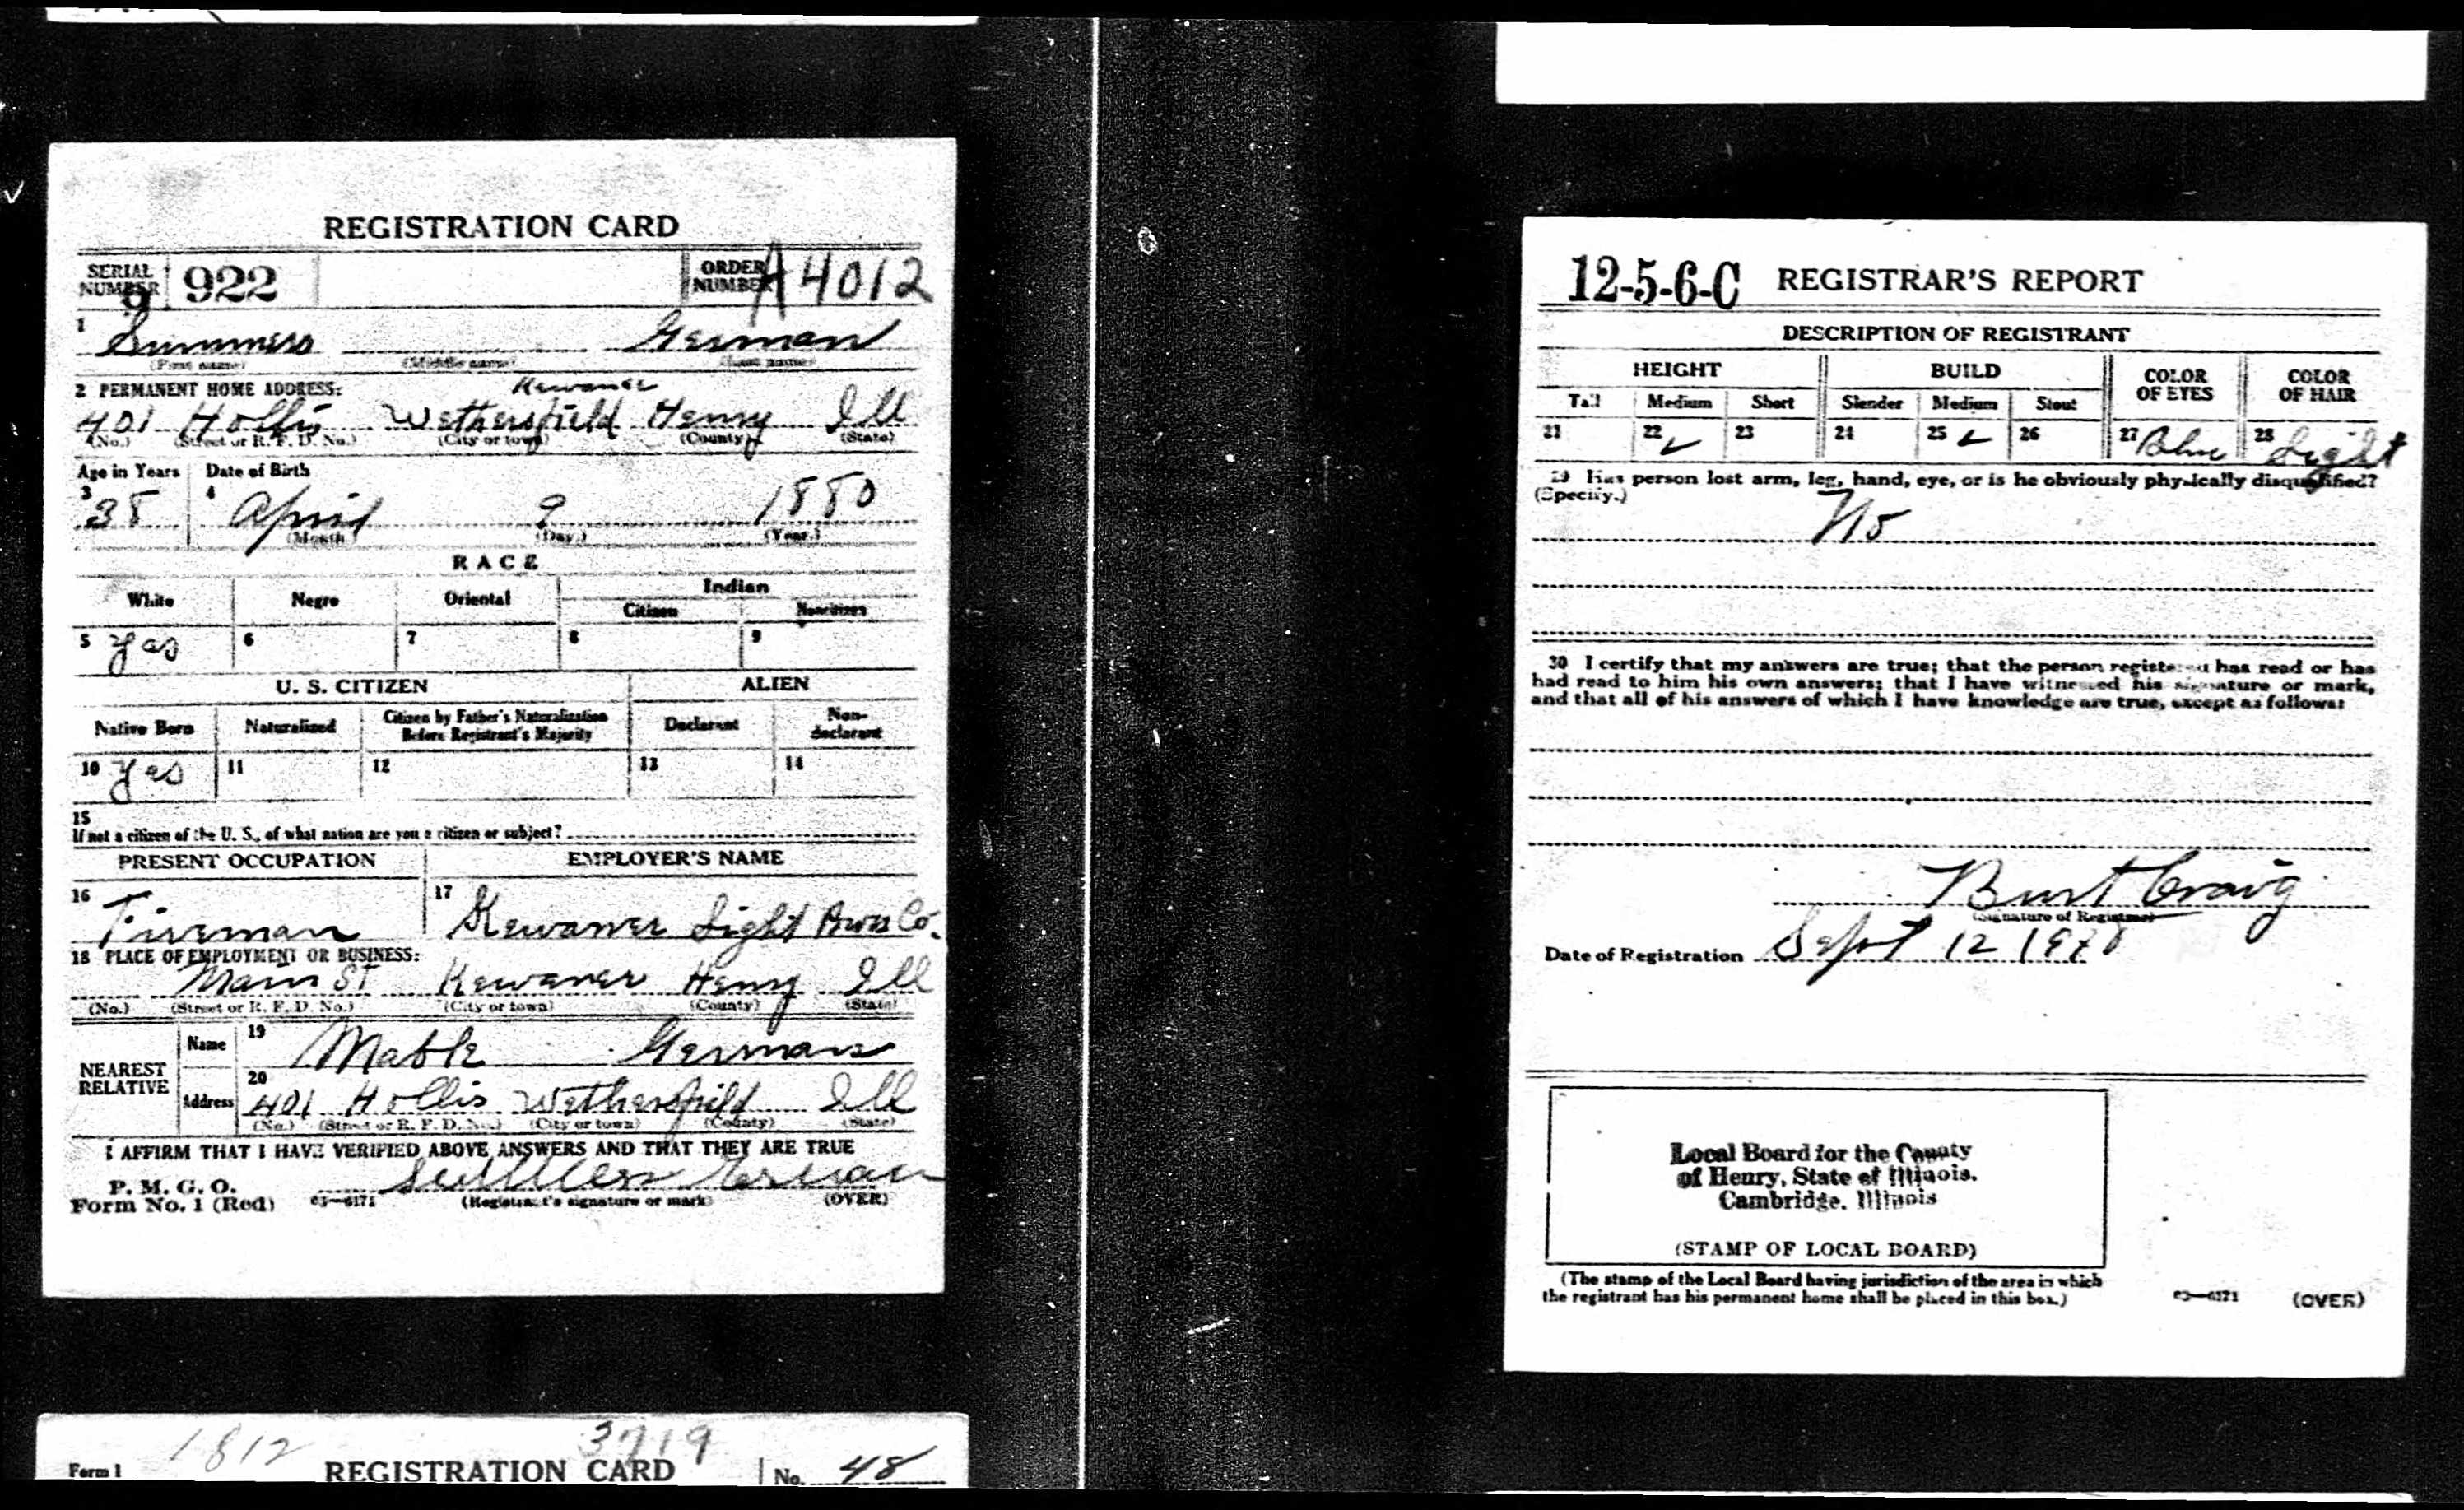 REGISTRATION CARD
SERIAL NUMBER 9 922 ORDER NUMBER A4012
1 Summers German
(First name) (Middle name) (Last name)
2 PERMANENT HOME ADDRESS: Kewanee
401 Hollis Wethersfield Henry Ill
(No.) (Street or R. F. D. No.) (City or town) (County) (State)
Age in Years Date of Birth
3 38 4 April 9 1880
(Month) (Day.) (Year.)
RACE
White Negro Oriental Indian
Citizen Noncitizen
5 Yes 6 7 8 9
U. S. CITIZEN ALIEN
Native Born Naturalized Citizen by Father's Naturalization Before Registrant's Majority Declarant Non-declarant
10 Yes 11 12 13 14
15
If not a citizen of the U. S., of what nation are you a citizen or subject?
PRESENT OCCUPATION EMPLOYER'S NAME
16 Fireman 17 Kewanee Light Co.
18 PLACE OF EMPLOYMENT OR BUSINESS:
Main St Kewanee Henry Ill
(No.) (Street or R. F. D. No.) (City or town) (County) (State)
NEAREST RELATIVE
Name 19 Mable German
Address 20 401 Hollis Wethersfield Ill
(No.) (Street or R. F. D. No.) (City or town) (County) (State)
I AFFIRM THAT I HAVE VERIFIED ABOVE ANSWERS AND THAT THEY ARE TRUE
P. M. G. O.
Form No. 1 (Red) 03—6171 (Registrant's signature or mark) (OVER)
1812 3719
Form 1 REGISTRATION CARD No. 48
12-5-6-C REGISTRAR'S REPORT
DESCRIPTION OF REGISTRANT
HEIGHT BUILD COLOR OF EYES COLOR OF HAIR
Tall Medium Short Slender Medium Stout
21 22 ✓ 23 24 25 ✓ 26 27 Blue 28 Light
29 Has person lost arm, leg, hand, eye, or is he obviously physically disqualified?
(Specify.) No
30 I certify that my answers are true; that the person registered has read or has
had read to him his own answers; that I have witnessed his signature or mark,
and that all of his answers of which I have knowledge are true, except as follows:
Burt Craig
(Signature of Registrar)
Date of Registration Sept 12 1918
Local Board for the County
of Henry, State of Illinois.
Cambridge, Illinois
(STAMP OF LOCAL BOARD)
(The stamp of the Local Board having jurisdiction of the area in which
the registrant has his permanent home shall be placed in this box.) 03—6171 (OVER)